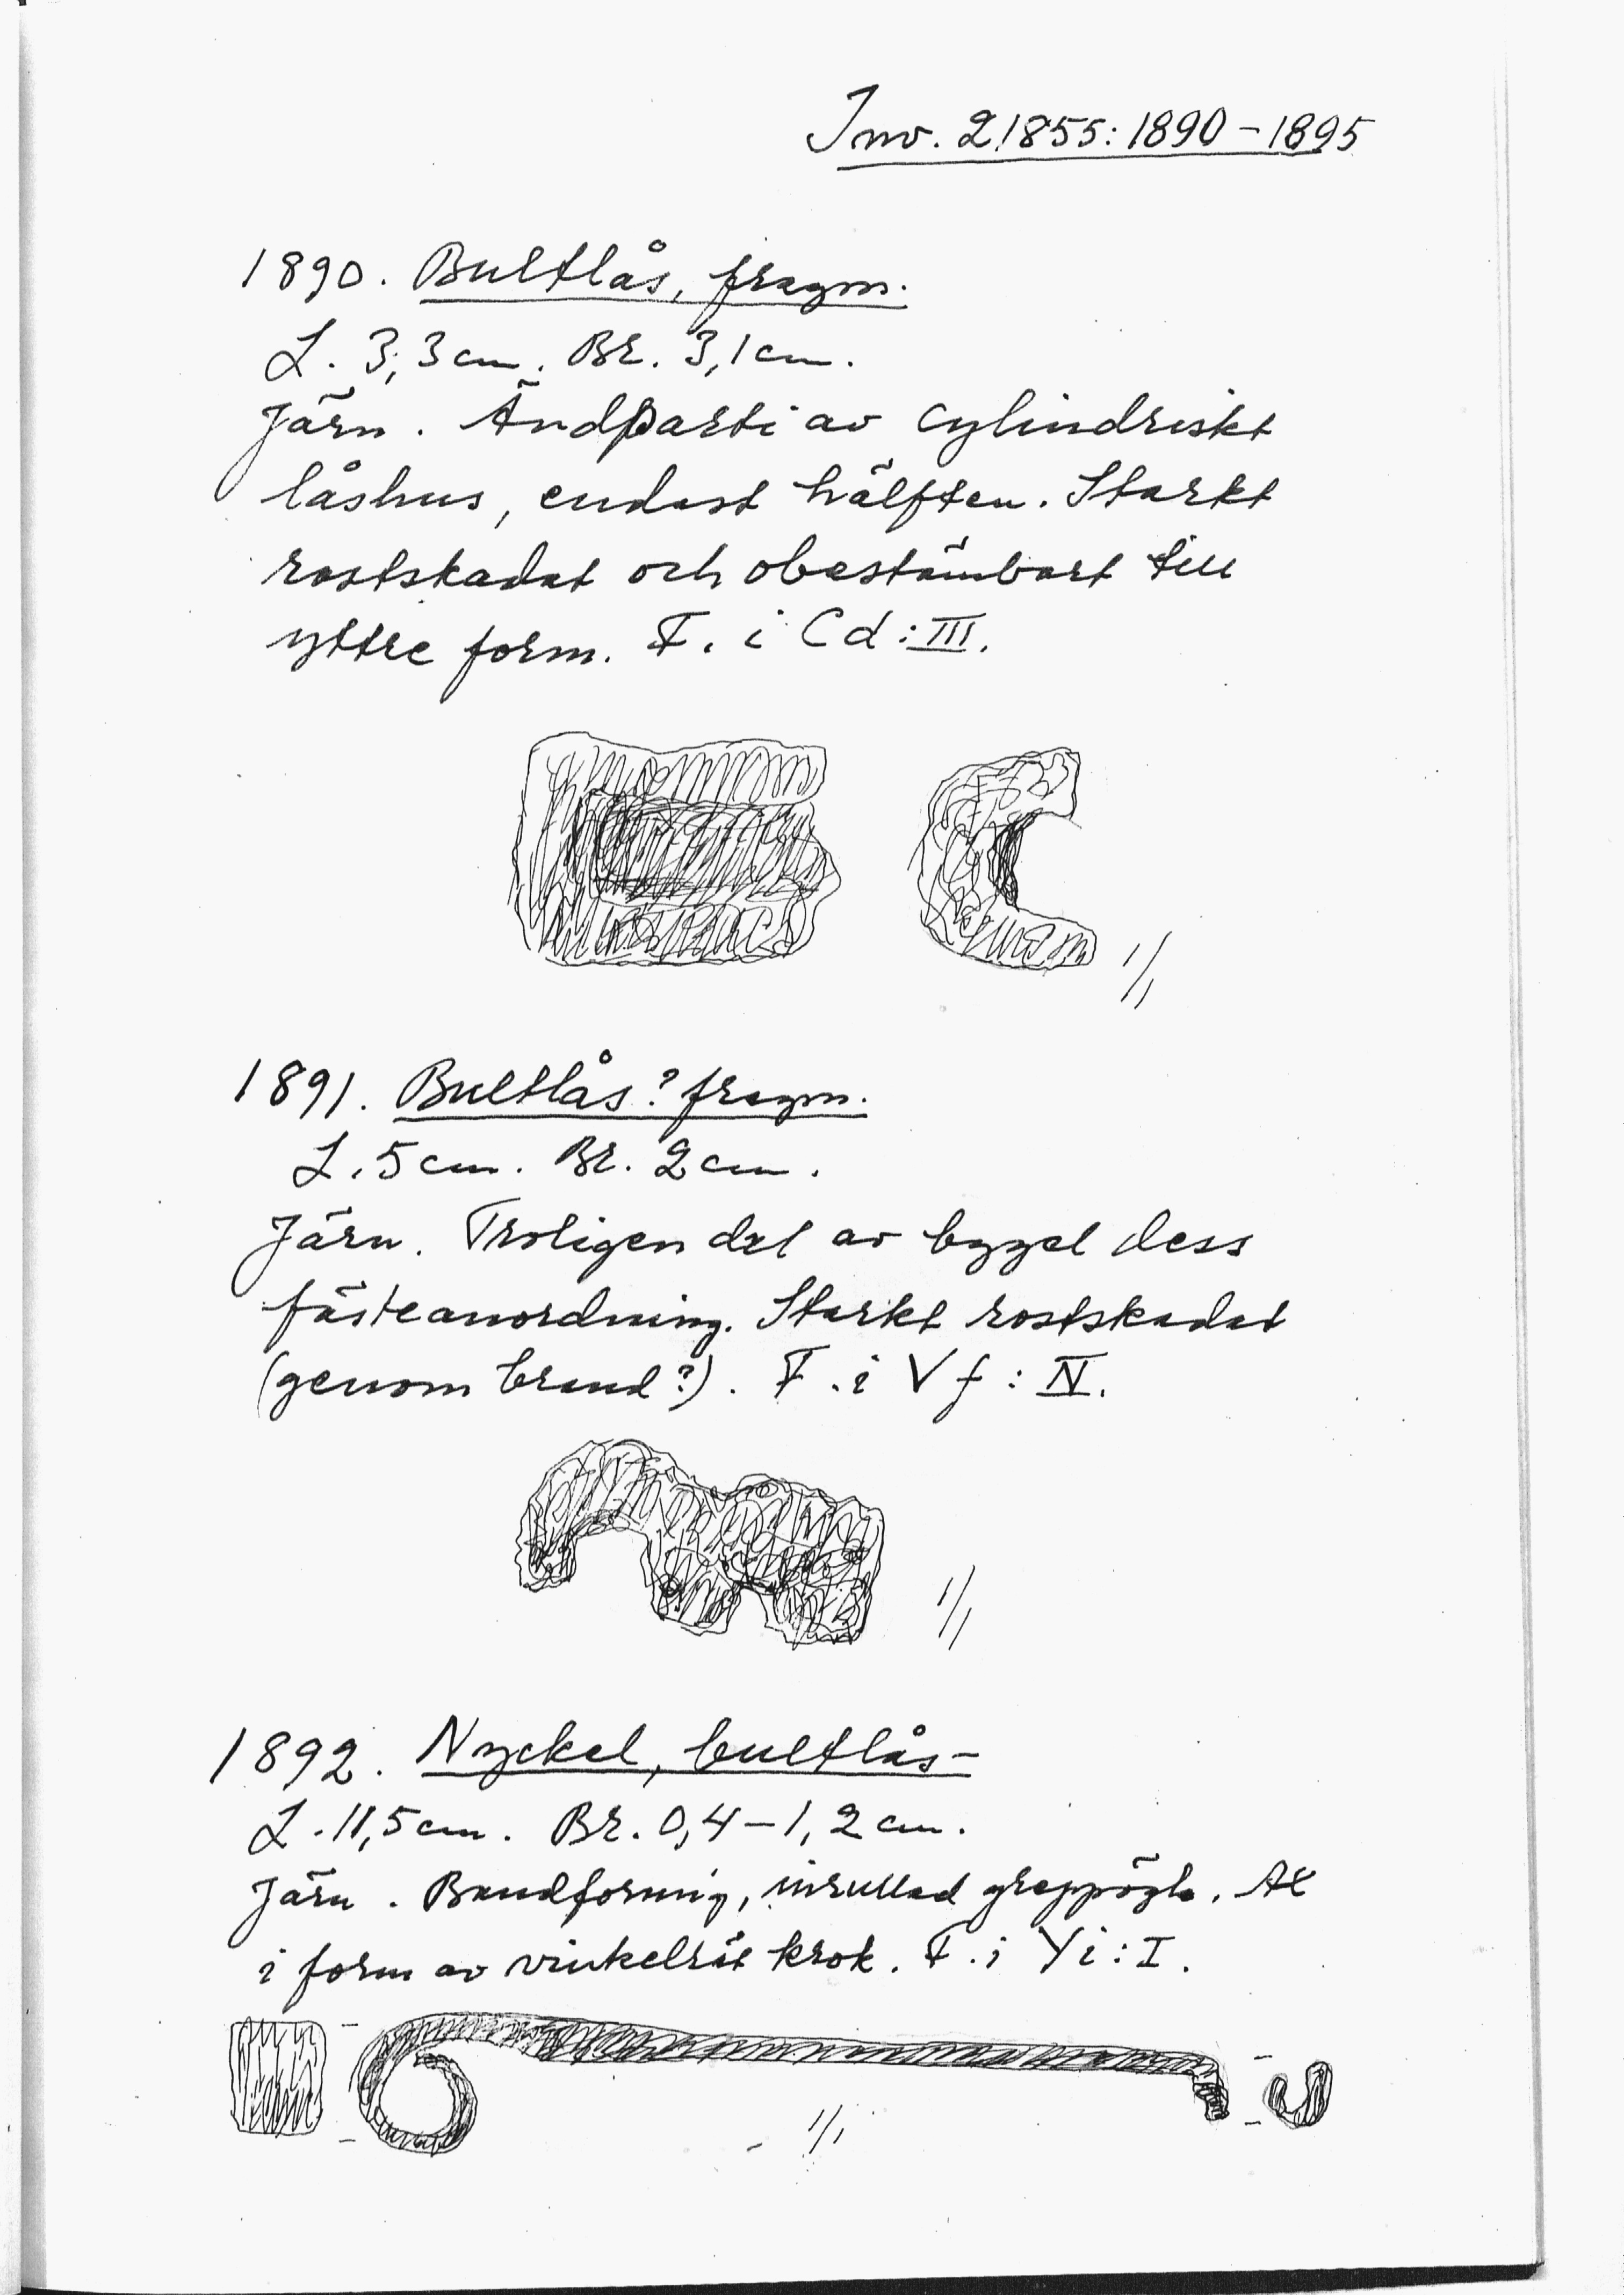 Inv. 21855:1890-1895
1890. Bultlås, fragm.
L. 3,3 cm. Br. 3,1 cm.
Järn. Ändparti av cylindriskt
låshus, endast hälften. Starkt
rostskadat och obestämbart till
yttre form. F. i Cd:III.
1/1
1891. Bultlås? fragm.
L. 5 cm. Br. 2 cm.
Järn. Troligen del av bygel dess
fästeanordning. Starkt rostskadat
(genom brand?). F. i Vf: IV.
1/1
1892. Nyckel, bultlås-
L. 11,5 cm. Br. 0,4-1,2 cm.
Järn. Bandformig, inrullad greppögla. Ax
i form av vinkelrät krok. F. i Yi: I.
1/1